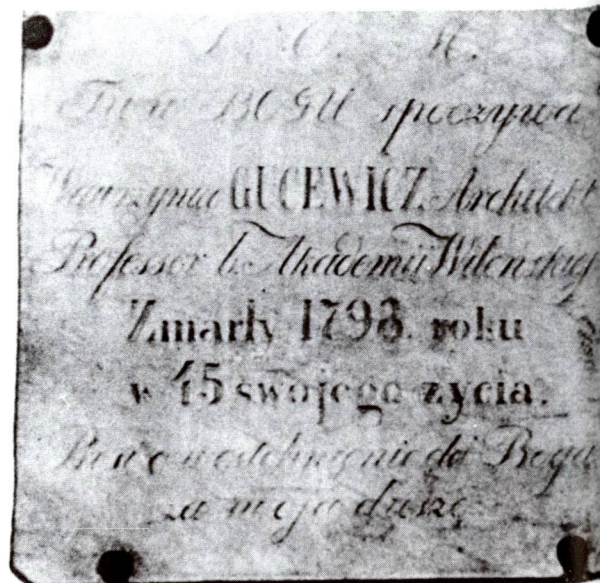 D. O. M.
Tu w BOGU spoczywa
Wawrzyniec GUCEWICZ Architekt
Professor b. Akademii Wilenskiej
Zmarły 1798. roku
w 45 swojego życia.
westchnienie do Boga
za moją duszę